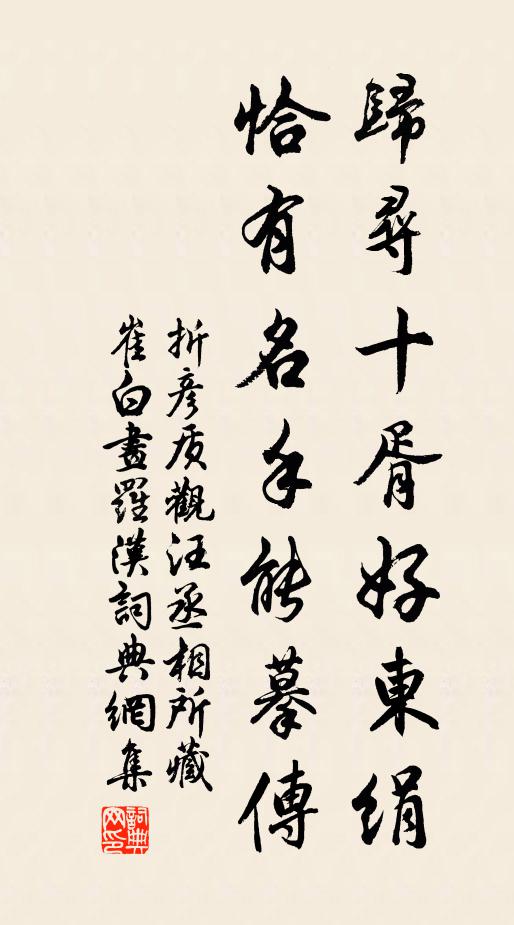 歸尋十胥好東絹
恰有名手能摹傳
折彥质觀汪丞相所藏
崔白畫羅漢詞典網集
詞典网印